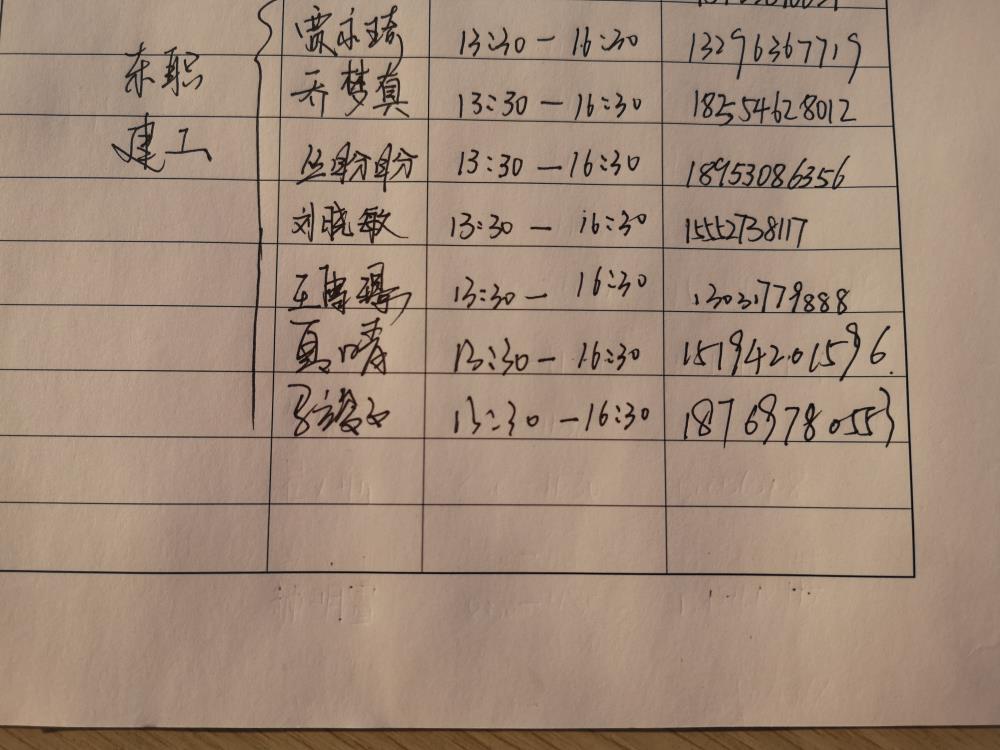 贾永琦 13:30 — 16:30 13296367719
东职
乔梦真 13:30 — 16:30 18254628012
建工
盼盼 13:30 — 16:30 18953086356
刘晓敏 13:30 — 16:30 15552738117
王博 13:30 — 16:30 13031779888
夏晴 13:30 — 16:30 15194201596
13:30 — 16:30 18769780553